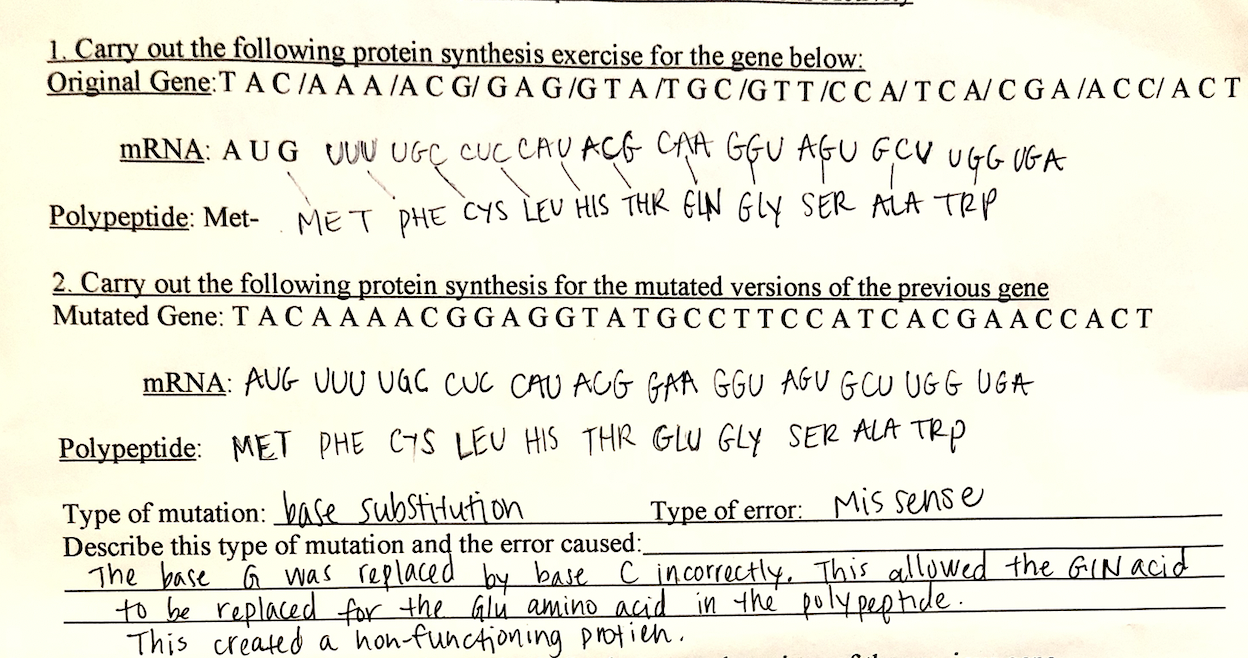 1. Carry out the following protein synthesis exercise for the gene below:
Original Gene:T A C /A A A /A C G/ G A G/G T A /T G C /G T T /C C A/ T C A/ C G A /A C C/ A C T
mRNA: A U G UUU UGC CUC CAU ACG CAA GGU AGU GCU UGG UGA
Polypeptide: Met- MET PHE CYS LEU HIS THR GLN GLY SER ALA TRP
2. Carry out the following protein synthesis for the mutated versions of the previous gene
Mutated Gene: T A C A A A A C G G A G G T A T G C C T T C C A T C A C G A A C C A C T
mRNA: AUG UUU UGC CUC CAU ACG GAA GGU AGU GCU UGG UGA
Polypeptide: MET PHE CYS LEU HIS THR GLU GLY SER ALA TRP
Type of mutation: base substitution Type of error: Missense
Describe this type of mutation and the error caused:
The base G was replaced by base C incorrectly. This allowed the GIN acid
to be replaced for the Glu amino acid in the polypeptide.
This created a non-functioning protien.